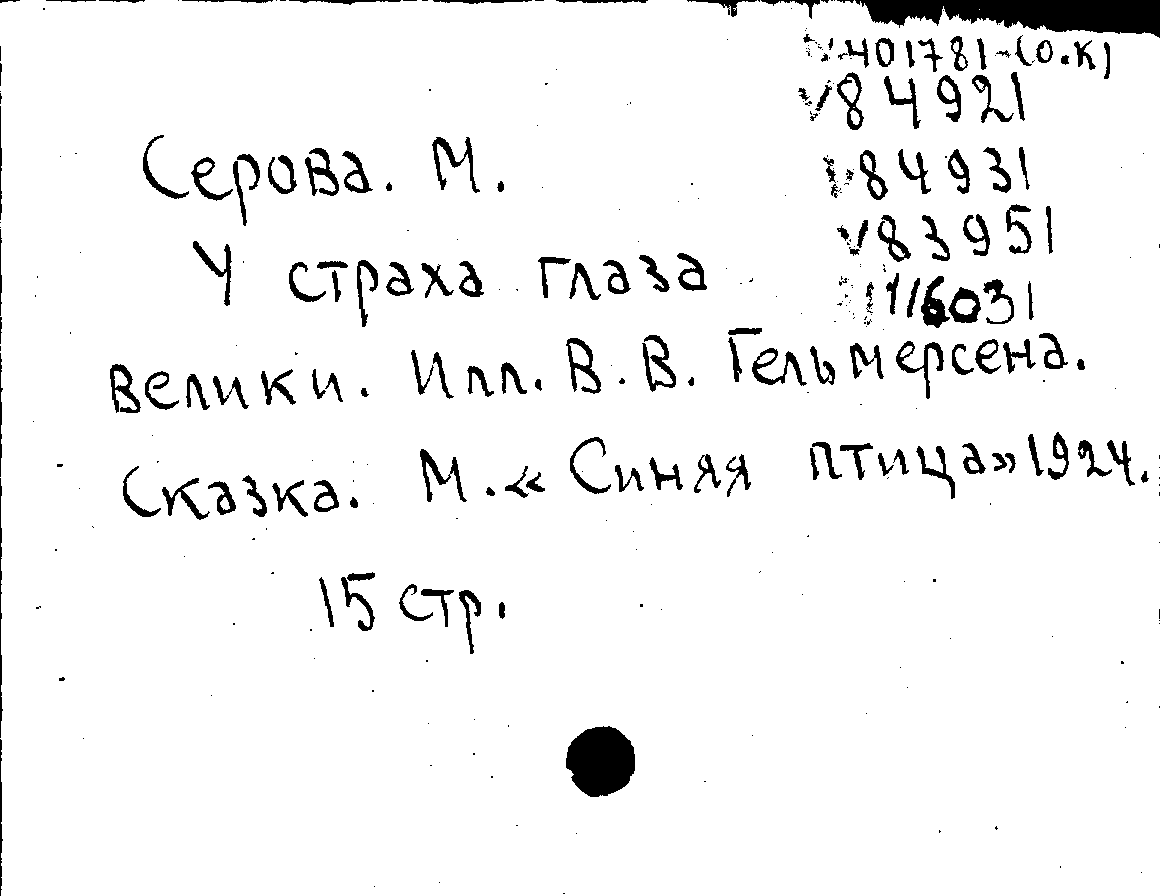 V401781-(О.К)
V84921
V84931
V83951
Серова. М.
У страха глаза
велики. Илл. В. В. Гельмерсена.
Сказка. М. «Синяя птица» 1924.
15 стр.